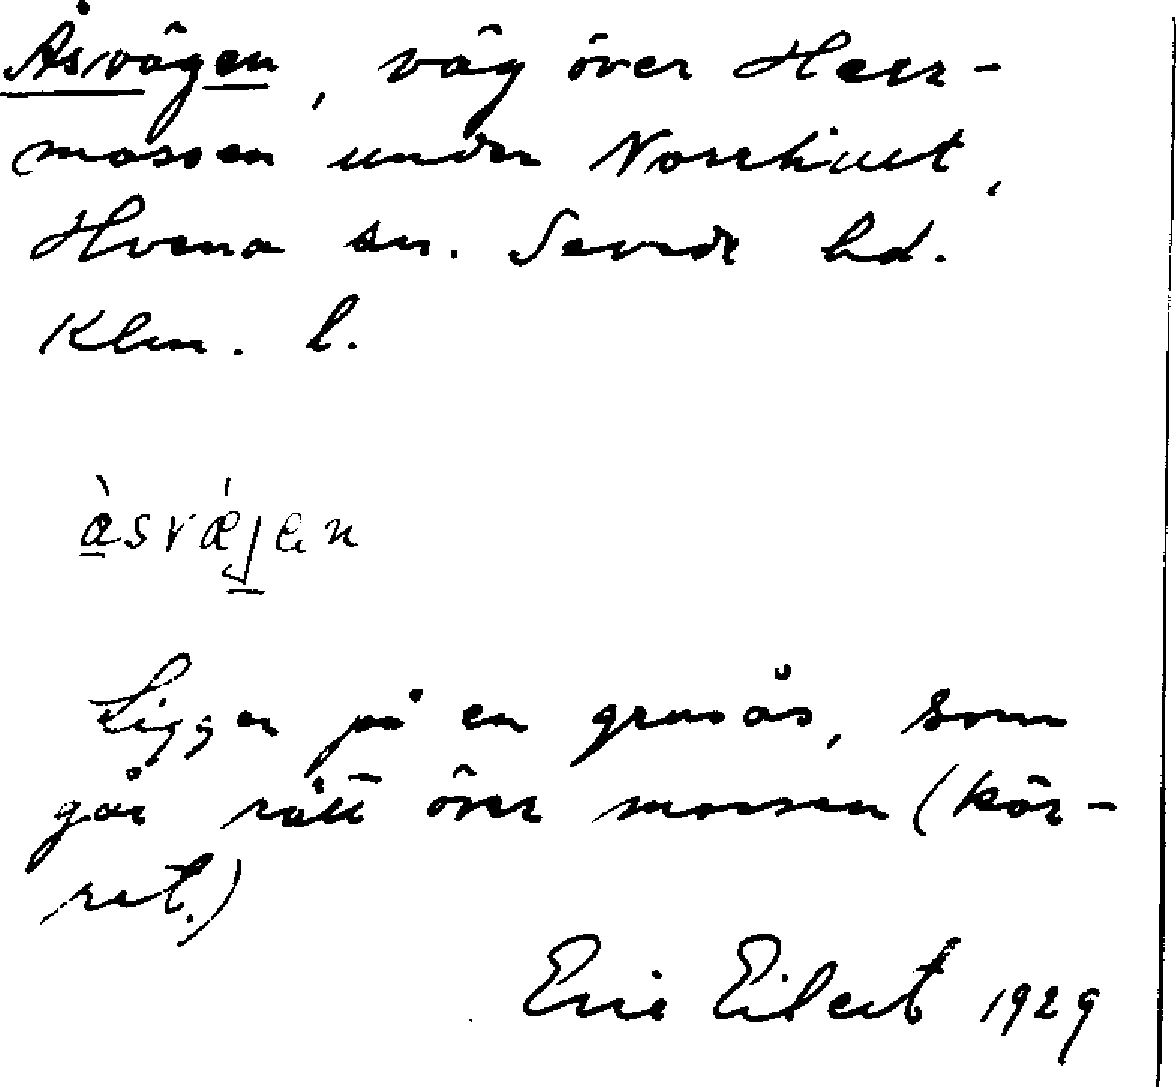 Åsvägen, väg över Herr-
mossen under Norrhult,
Hvena sn. Sevede hd.
Klm. l.
åsvæjen
Ligger på en grusås, som
går rätt över mossen (kär-
ret.)
Eric Eilert 1929